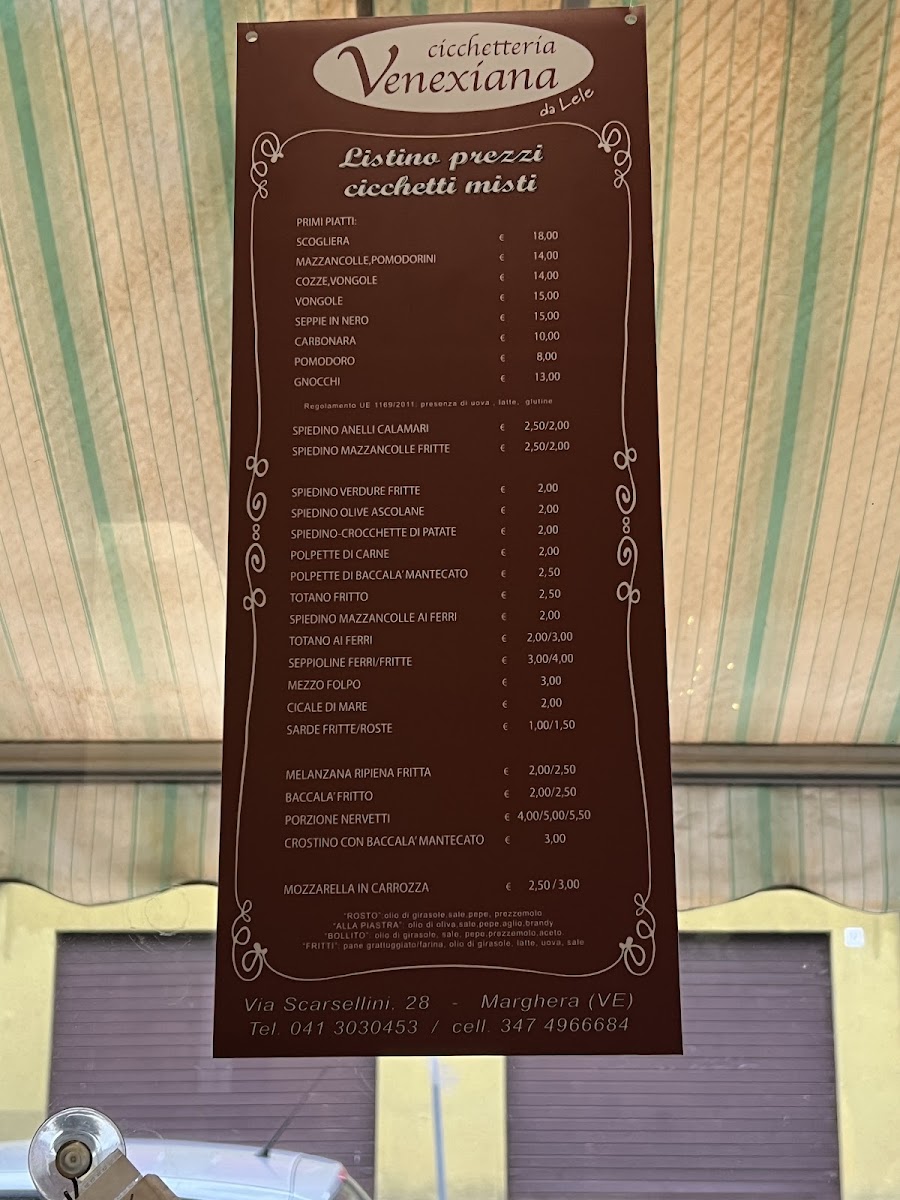 cicchetteria
Venexiana
da Lele
Listino prezzi
cicchetti misti
PRIMI PIATTI:
SCOGLIERA € 18,00
MAZZANCOLLE,POMODORINI € 14,00
COZZE,VONGOLE € 14,00
VONGOLE € 15,00
SEPPIE IN NERO € 15,00
CARBONARA € 10,00
POMODORO € 8,00
GNOCCHI € 13,00
Regolamento UE 1169/2011: presenza di uova , latte, glutine
SPIEDINO ANELLI CALAMARI € 2,50/2,00
SPIEDINO MAZZANCOLLE FRITTE € 2,50/2,00
SPIEDINO VERDURE FRITTE € 2,00
SPIEDINO OLIVE ASCOLANE € 2,00
SPIEDINO-CROCCHETTE DI PATATE € 2,00
POLPETTE DI CARNE € 2,00
POLPETTE DI BACCALA' MANTECATO € 2,50
TOTANO FRITTO € 2,50
SPIEDINO MAZZANCOLLE AI FERRI € 2,00
TOTANO AI FERRI € 2,00/3,00
SEPPIOLINE FERRI/FRITTE € 3,00/4,00
MEZZO FOLPO € 3,00
CICALE DI MARE € 2,00
SARDE FRITTE/ROSTE € 1,00/1,50
MELANZANA RIPIENA FRITTA € 2,00/2,50
BACCALA' FRITTO € 2,00/2,50
PORZIONE NERVETTI € 4,00/5,00/5,50
CROSTINO CON BACCALA' MANTECATO € 3,00
MOZZARELLA IN CARROZZA € 2,50 / 3,00
"ROSTO":olio di girasole,sale,pepe, prezzemolo.
"ALLA PIASTRA": olio di oliva,sale,pepe,aglio,brandy
"BOLLITO": olio di girasole, sale, pepe,prezzemolo,aceto.
"FRITTI": pane grattuggiato/farina, olio di girasole, latte, uova, sale
Via Scarsellini, 28 - Marghera (VE)
Tel. 041 3030453 / cell. 347 4966684